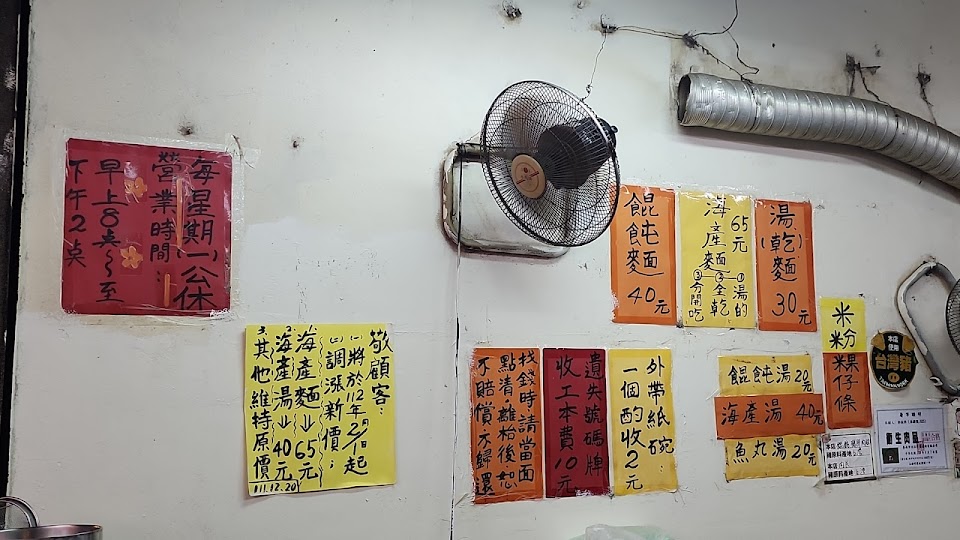 每星期(一)公休
營業時間:
早上8點～至
下午2點
敬顧客:
(一)將於112年2/1日起
(二)調漲新價:
1.海產麵→65元
2.海產湯→40元
3.其他維持原價
111.12.20
餛飩麵40元
海產麵65元
①湯的
②全乾
③分開吃
湯(乾)麵30元
米粉
粿仔條
找錢時請當面
點清離枱後恕
不賠償大歸還
遺失號碼牌
收工本費10元
外帶紙碗:
一個酌收2元
餛飩湯20元
海產湯40元
魚丸湯20元
本店使用
台灣豬